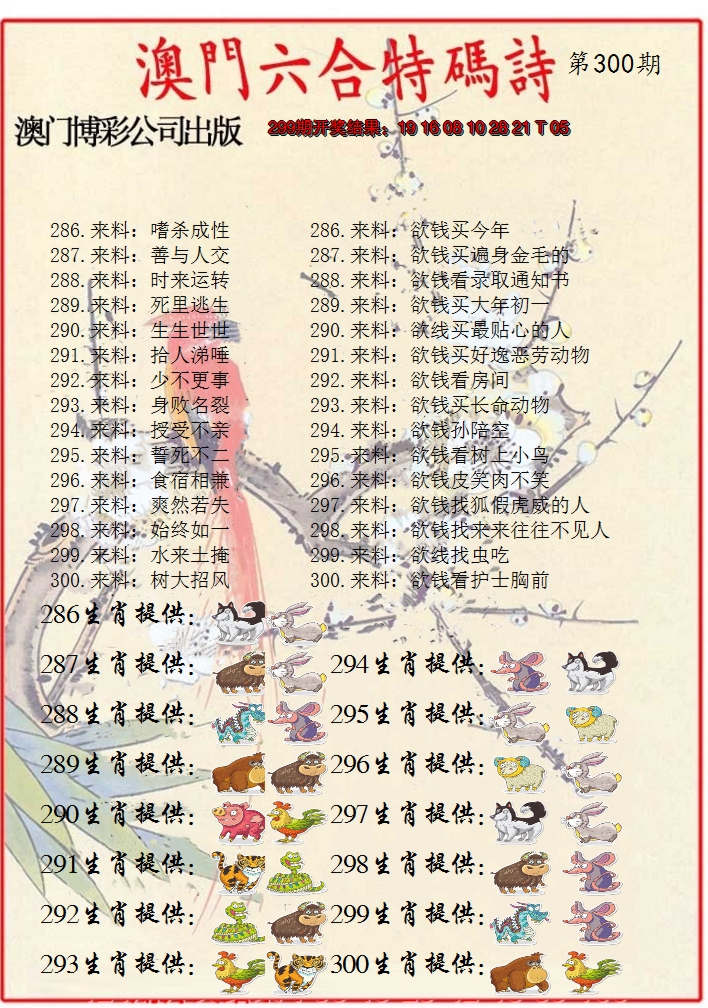 澳門六合特碼詩 第300期
澳门博彩公司出版 299期开奖结果：19 16 08 10 28 21 T 05
286.来料：嗜杀成性 286.来料：欲钱买今年
287.来料：善与人交 287.来料：欲钱买遍身金毛的
288.来料：时来运转 288.来料：欲钱看录取通知书
289.来料：死里逃生 289.来料：欲钱买大年初一
290.来料：生生世世 290.来料：欲线买最贴心的人
291.来料：拾人涕唾 291.来料：欲钱买好逸恶劳动物
292.来料：少不更事 292.来料：欲钱看房间
293.来料：身败名裂 293.来料：欲钱买长命动物
294.来料：授受不亲 294.来料：欲钱孙陪空
295.来料：誓死不二 295.来料：欲钱看树上小鸟
296.来料：食宿相兼 296.来料：欲钱皮笑肉不笑
297.来料：爽然若失 297.来料：欲钱找狐假虎威的人
298.来料：始终如一 298.来料：欲钱找来来往往不见人
299.来料：水来土掩 299.来料：欲线找虫吃
300.来料：树大招风 300.来料：欲钱看护士胸前
286生肖提供：
287生肖提供： 294生肖提供：
288生肖提供： 295生肖提供：
289生肖提供： 296生肖提供：
290生肖提供： 297生肖提供：
291生肖提供： 298生肖提供：
292生肖提供： 299生肖提供：
293生肖提供： 300生肖提供：